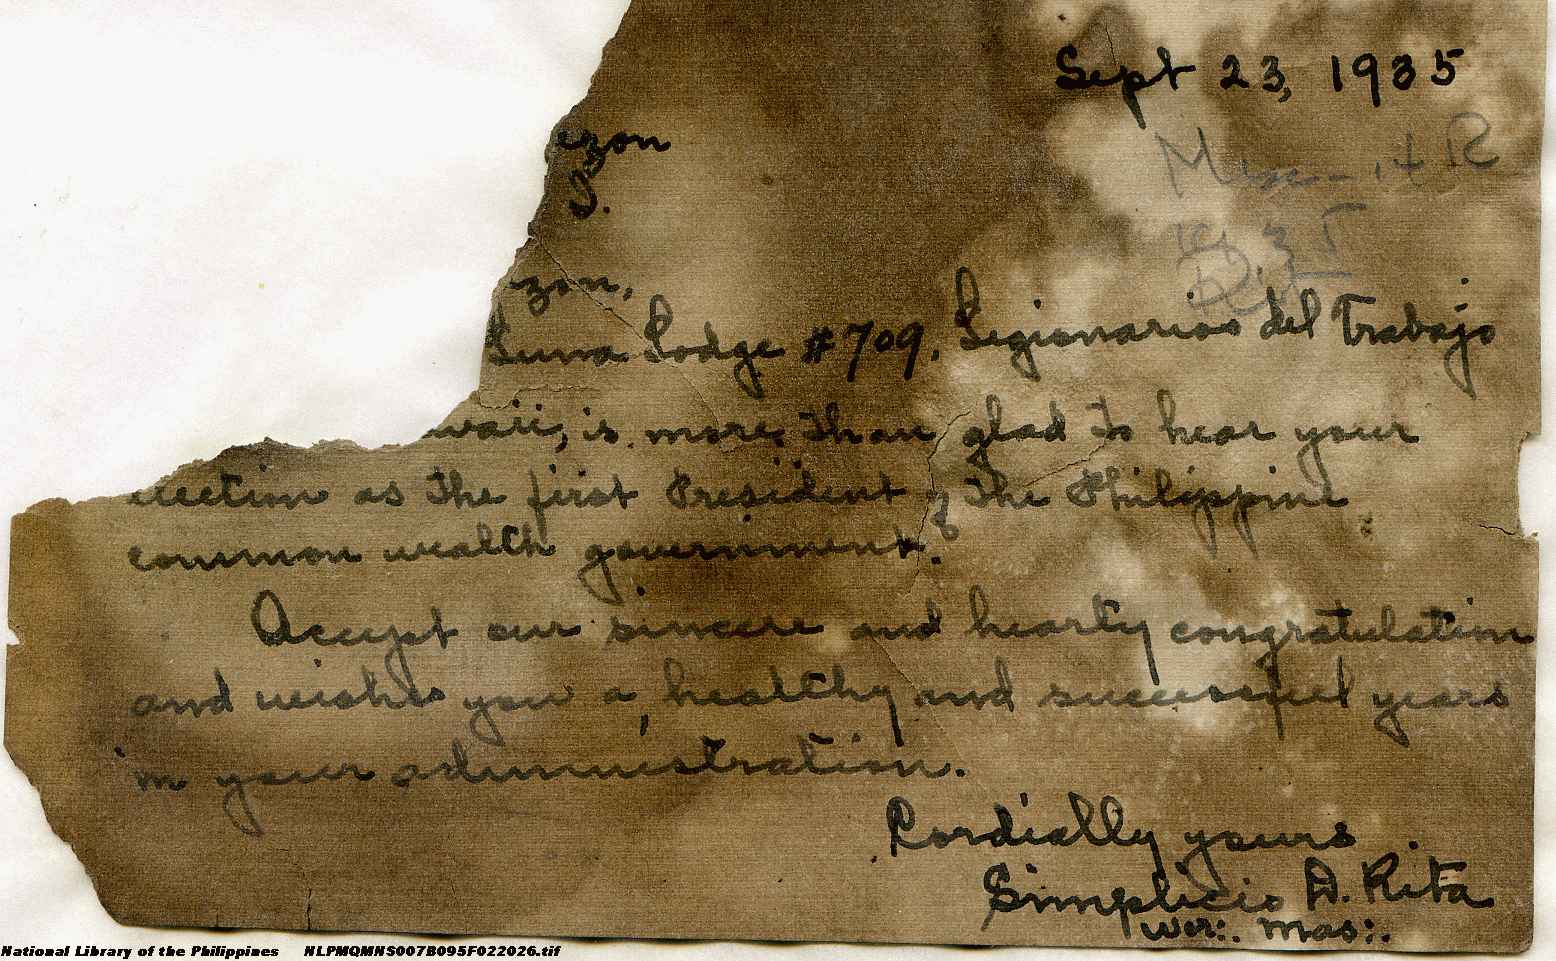 Sept 23, 1935
ezon
S.
zon,
Luna Lodge #709, Legionarios del Trabajo
waii, is more than glad to hear your
election as the first President of the Philippine
common wealth government.
Accept our sincere and hearty congratulation
and wishes you a healthy and successful years
in your administration.
Cordially yours
Simplicio A. Rita
Wor:. Mas:.
National Library of the Philippines NLPMQMNS007B095F022026.tif